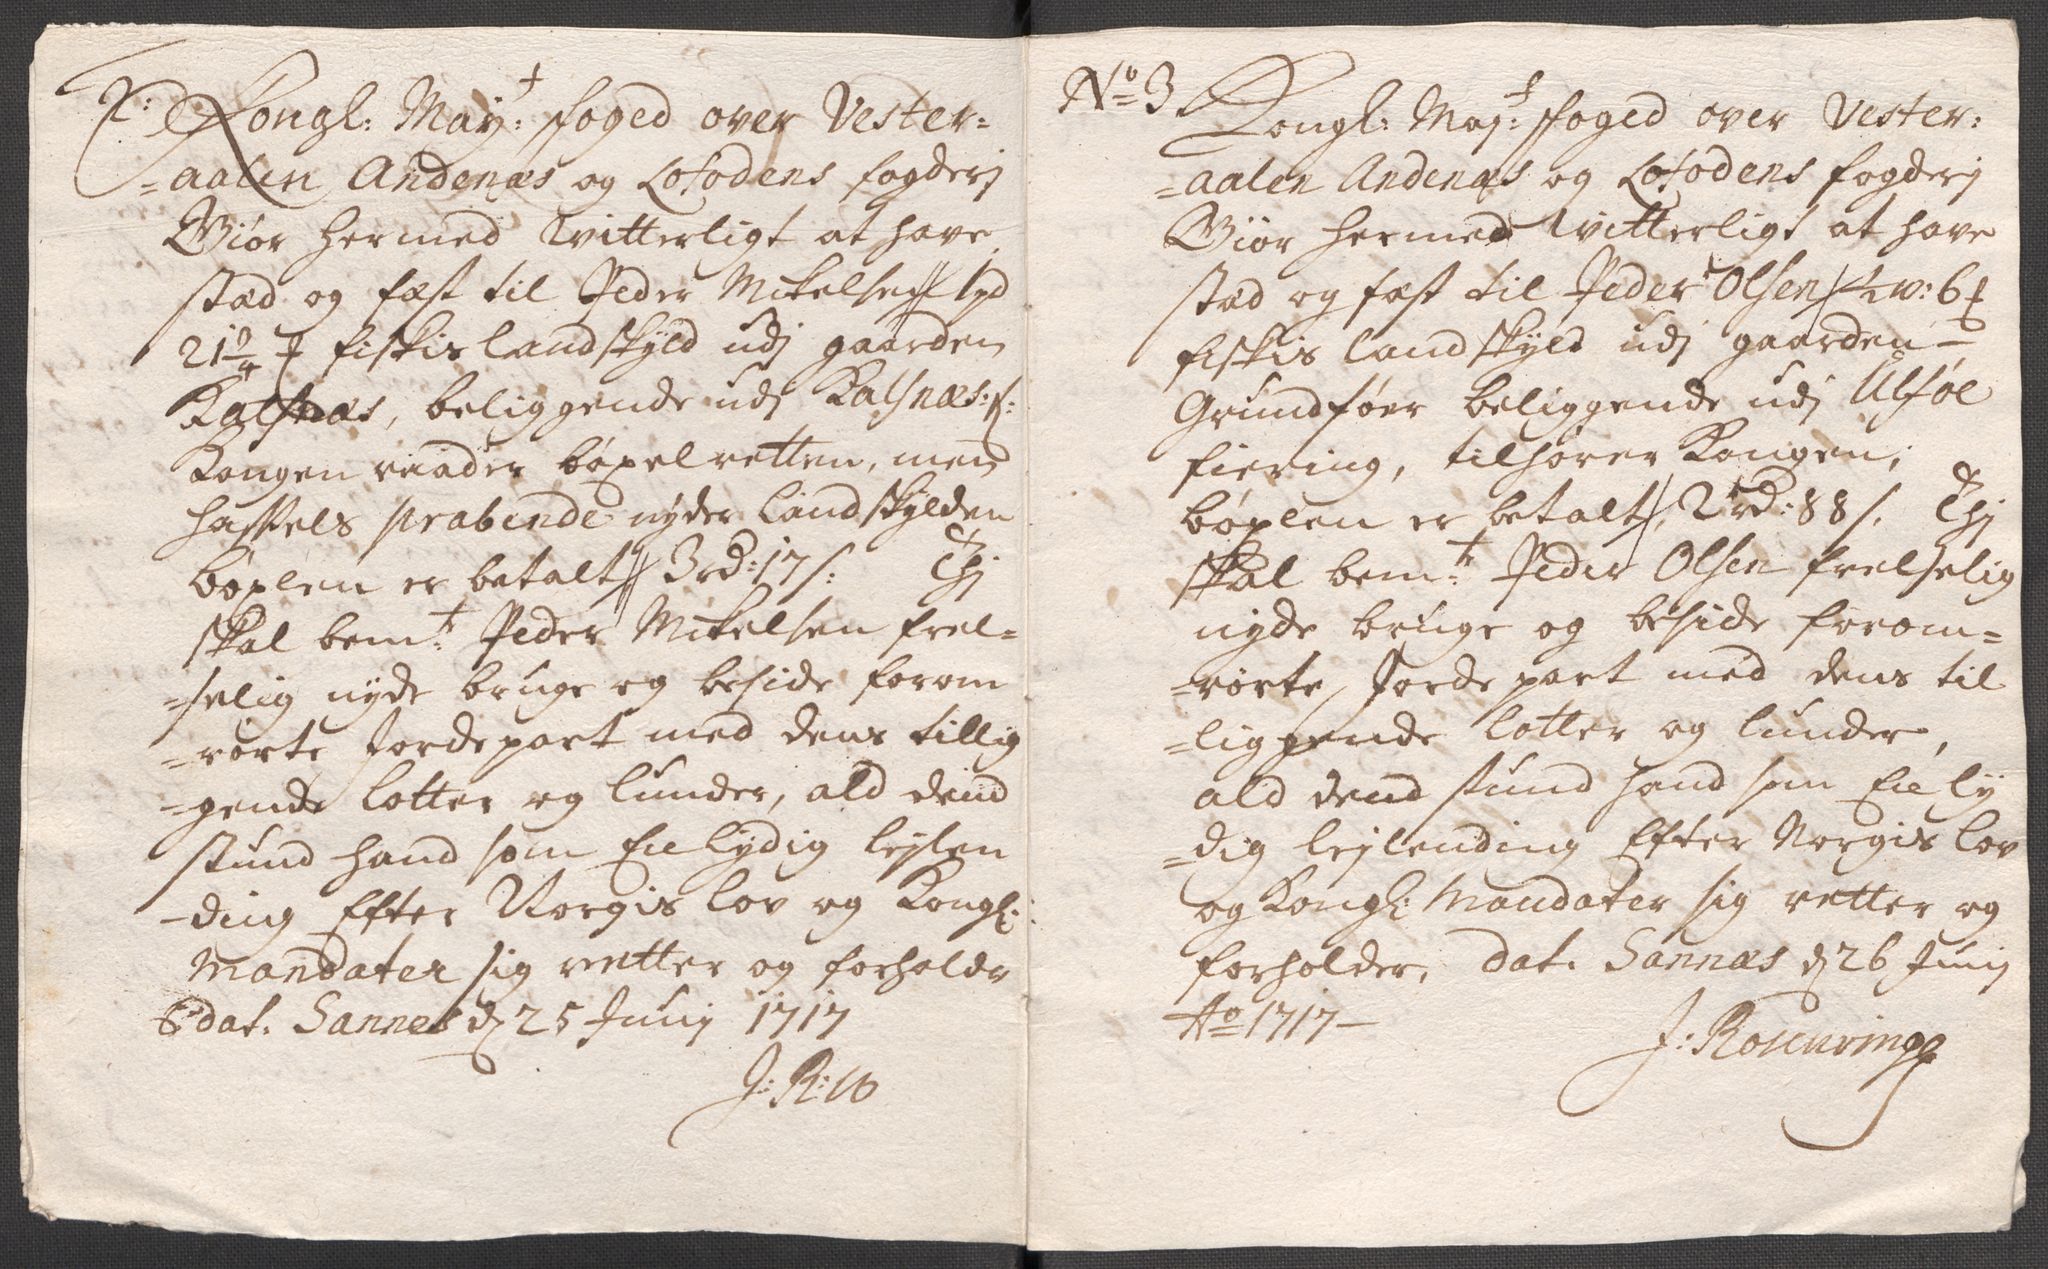 2: Kongl: May:t foged over Vester=
=aalen Andenæs og Lofodens fogderj
Giör hermed Witterligt at have
stæd og fæst til Peder Mikelsen
21 fiskis landskyld udj gaarden
Kalsnæs, beliggende udj Kalsnæs: f:
Kongen raader böxelretten, men
Hassels præbende nyder Landskylden
böxlen er betalt 3 rd: 17 s: Thj
skal bem:t Peder Mikelsen frel=
=selig nyde bruge og beside forom
=rörte Jordepart med dens tillig
=gende lotter og lunder, ald dend
stund hand som En lydig lejlen
=ding Efter Norgis lov og Kongl:
Mandater sig retter og forholdr
dat. Sannes d 25 Junj 1717
J: R:
No 3 Kongl: Maj:t foged over Vester=
=aalen Andenæs og Lofodens fogderj
Giör hermed Witterligt at have
stæd og fæst til Peder Olsen 1/2 w: 6
fiskis landskyld udj gaarden
Grundföer beliggende udj Ulföe
fiering, tilhörer Kongen,
böxlen er betalt, 2 rd: 88 s. Thj
skal bem:t Peder Olsen frelselig
nyde bruge og beside forom=
=rörte Jordepart med dens til
=liggende lotter og lunder,
ald dend stund hand som En ly
=dig lejlending Efter Norgis lov
og Kongl: Mandater sig retter og
forholder, dat. Sannæs d 26 Junj
Ao 1717
J: Rosenvinge